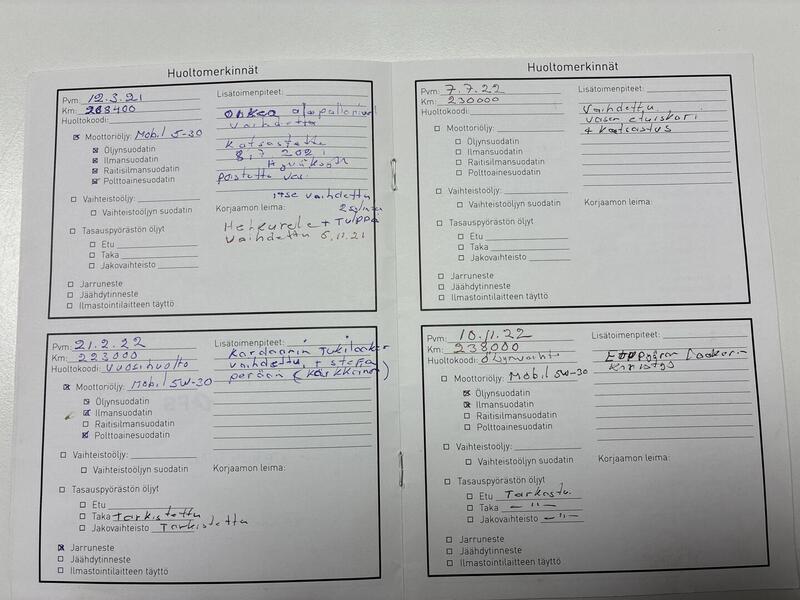 Huoltomerkinnät
Pvm: 12.3.21
Km: 208400
Huoltokoodi:
Moottoriöljy: Mobil 5-30
Öljynsuodatin
Ilmansuodatin
Raitisilmansuodatin
Polttoainesuodatin
Vaihteistoöljy:
Vaihteistoöljyn suodatin
Tasauspyörästön öljyt
Etu
Taka
Jakovaihteisto
Jarruneste
Jäähdytinneste
Ilmastointilaitteen täyttö
Lisätoimenpiteet:
oikea alapallonivel
vaihdettu
Katsastettu
8,7 2021
Hyväksytt
poistettu vas.
itse vaihdettu
Korjaamon leima:
Hehkurele + Tulppa
Vaihdettu 5,11.21
Pvm: 21.2.22
Km: 223000
Huoltokoodi: Vuosihuolto
Moottoriöljy: Mobil 5W-30
Öljynsuodatin
Ilmansuodatin
Raitisilmansuodatin
Polttoainesuodatin
Vaihteistoöljy:
Vaihteistoöljyn suodatin
Tasauspyörästön öljyt
Etu
Taka Tarkistettu
Jakovaihteisto Tarkistettu
Jarruneste
Jäähdytinneste
Ilmastointilaitteen täyttö
Lisätoimenpiteet:
Kardaanin Tukilaaker
vaihdettu + stefa
perään (Kärkkäinen)
Korjaamon leima:
Huoltomerkinnät
Pvm: 7.7.22
Km: 230000
Huoltokoodi:
Moottoriöljy:
Öljynsuodatin
Ilmansuodatin
Raitisilmansuodatin
Polttoainesuodatin
Vaihteistoöljy:
Vaihteistoöljyn suodatin
Tasauspyörästön öljyt
Etu
Taka
Jakovaihteisto
Jarruneste
Jäähdytinneste
Ilmastointilaitteen täyttö
Lisätoimenpiteet:
Vaihdettu
vasen etuiskari
+ katsastus
Korjaamon leima:
Pvm: 10.11.22
Km: 238000
Huoltokoodi: Öljynvaihto
Moottoriöljy: Mobil 5W-30
Öljynsuodatin
Ilmansuodatin
Raitisilmansuodatin
Polttoainesuodatin
Vaihteistoöljy:
Vaihteistoöljyn suodatin
Tasauspyörästön öljyt
Etu Tarkastu.
Taka -"-
Jakovaihteisto -"-
Jarruneste
Jäähdytinneste
Ilmastointilaitteen täyttö
Lisätoimenpiteet:
Etupyörän Laakerin
Kiristys
Korjaamon leima: